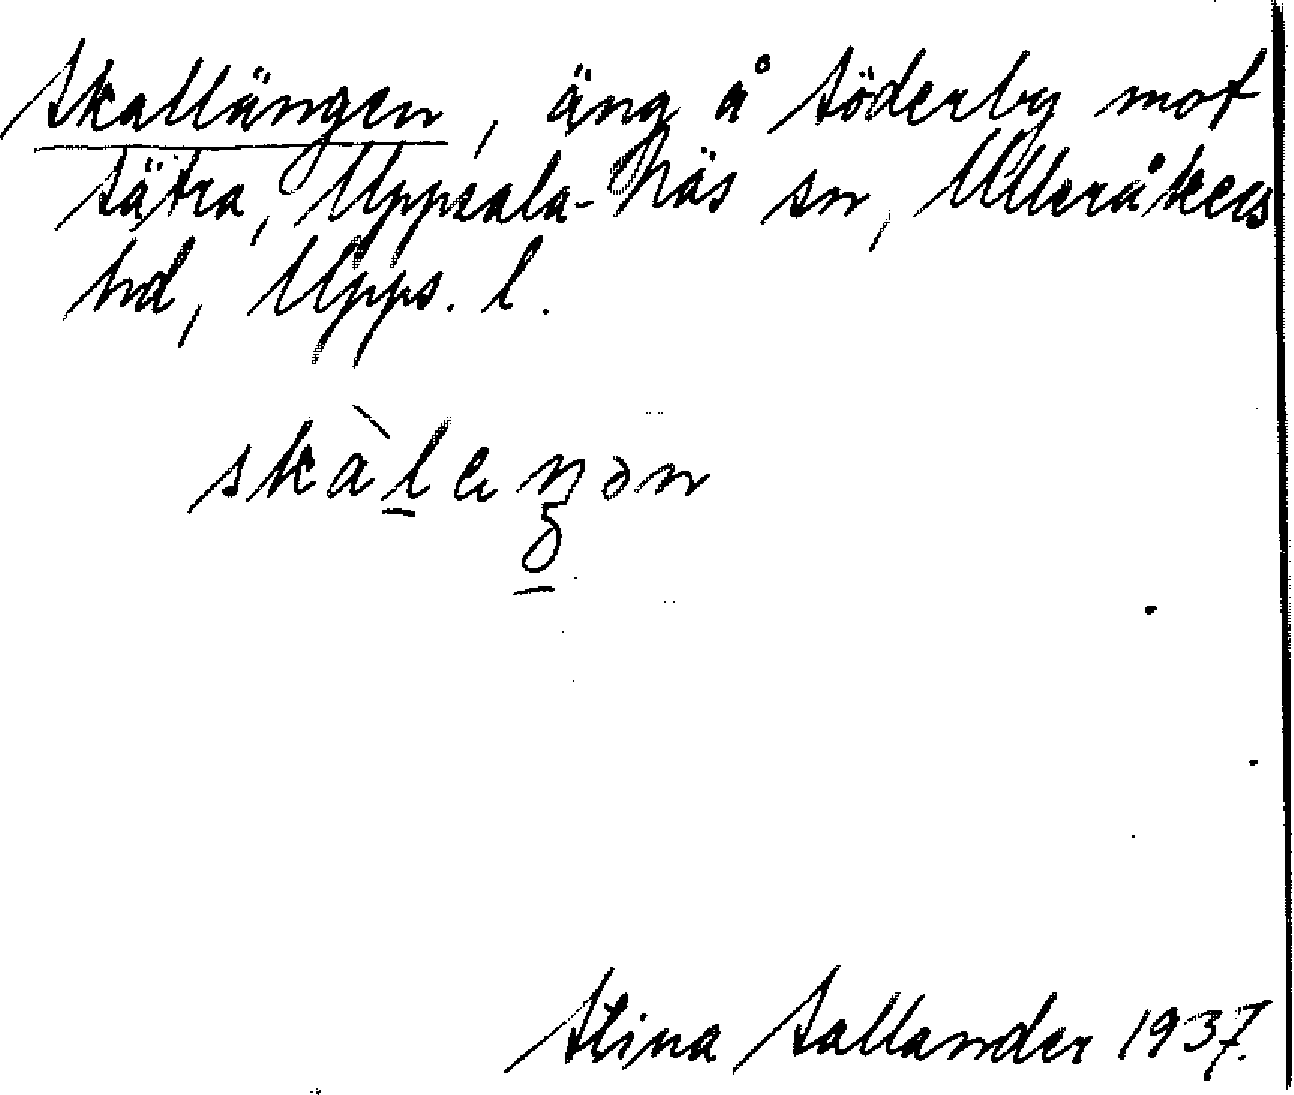 Skallängen, äng å Söderby mot
Sätra, Uppsala-Näs sn, Ulleråkers
hd, Upps. l.
Stina Sallander 1937.